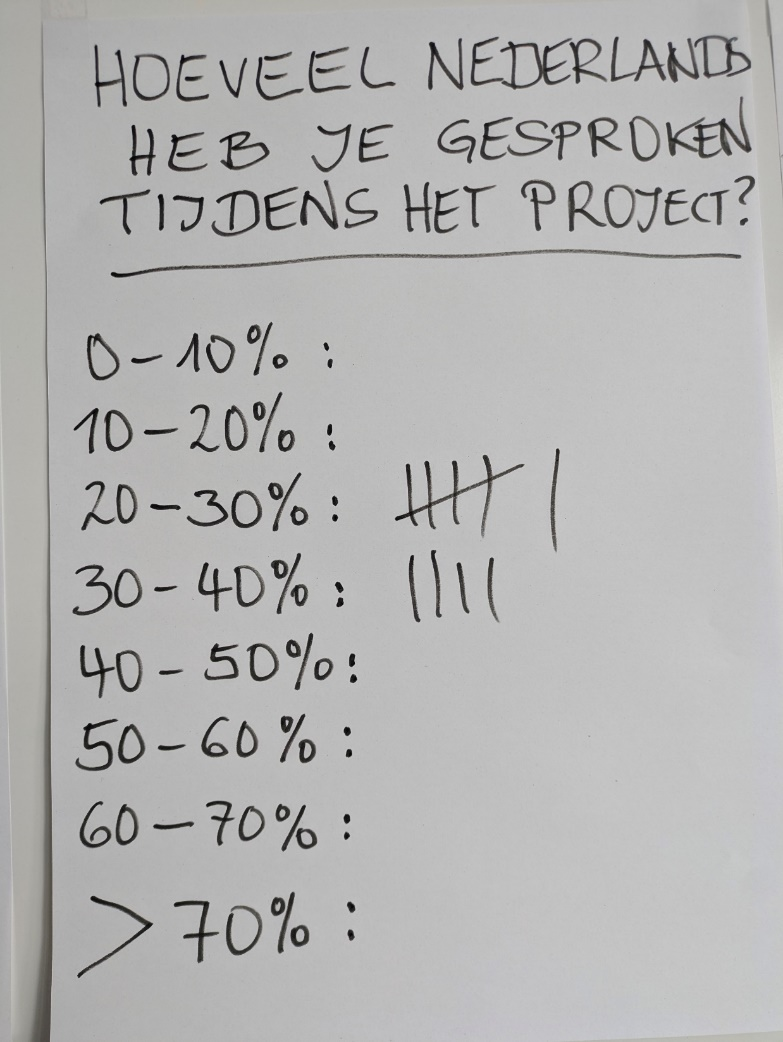 HOEVEEL NEDERLANDS
HEB JE GESPROKEN
TIJDENS HET PROJECT?
0-10% :
10-20% :
20-30% : 卌 |
30-40% : ||||
40-50% :
50-60% :
60-70% :
>70% :